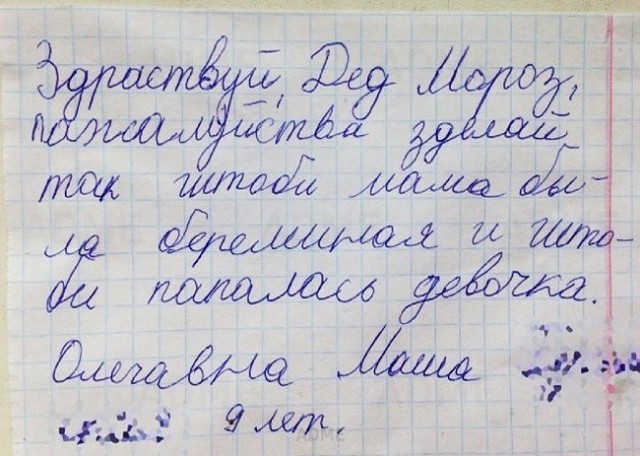 Здраствуй, Дед Мороз,
пажалуйства зделай
так штоби мама бы-
ла береминая и што-
би папалась девочка.
Олечавна Маша
9 лет.
ADME